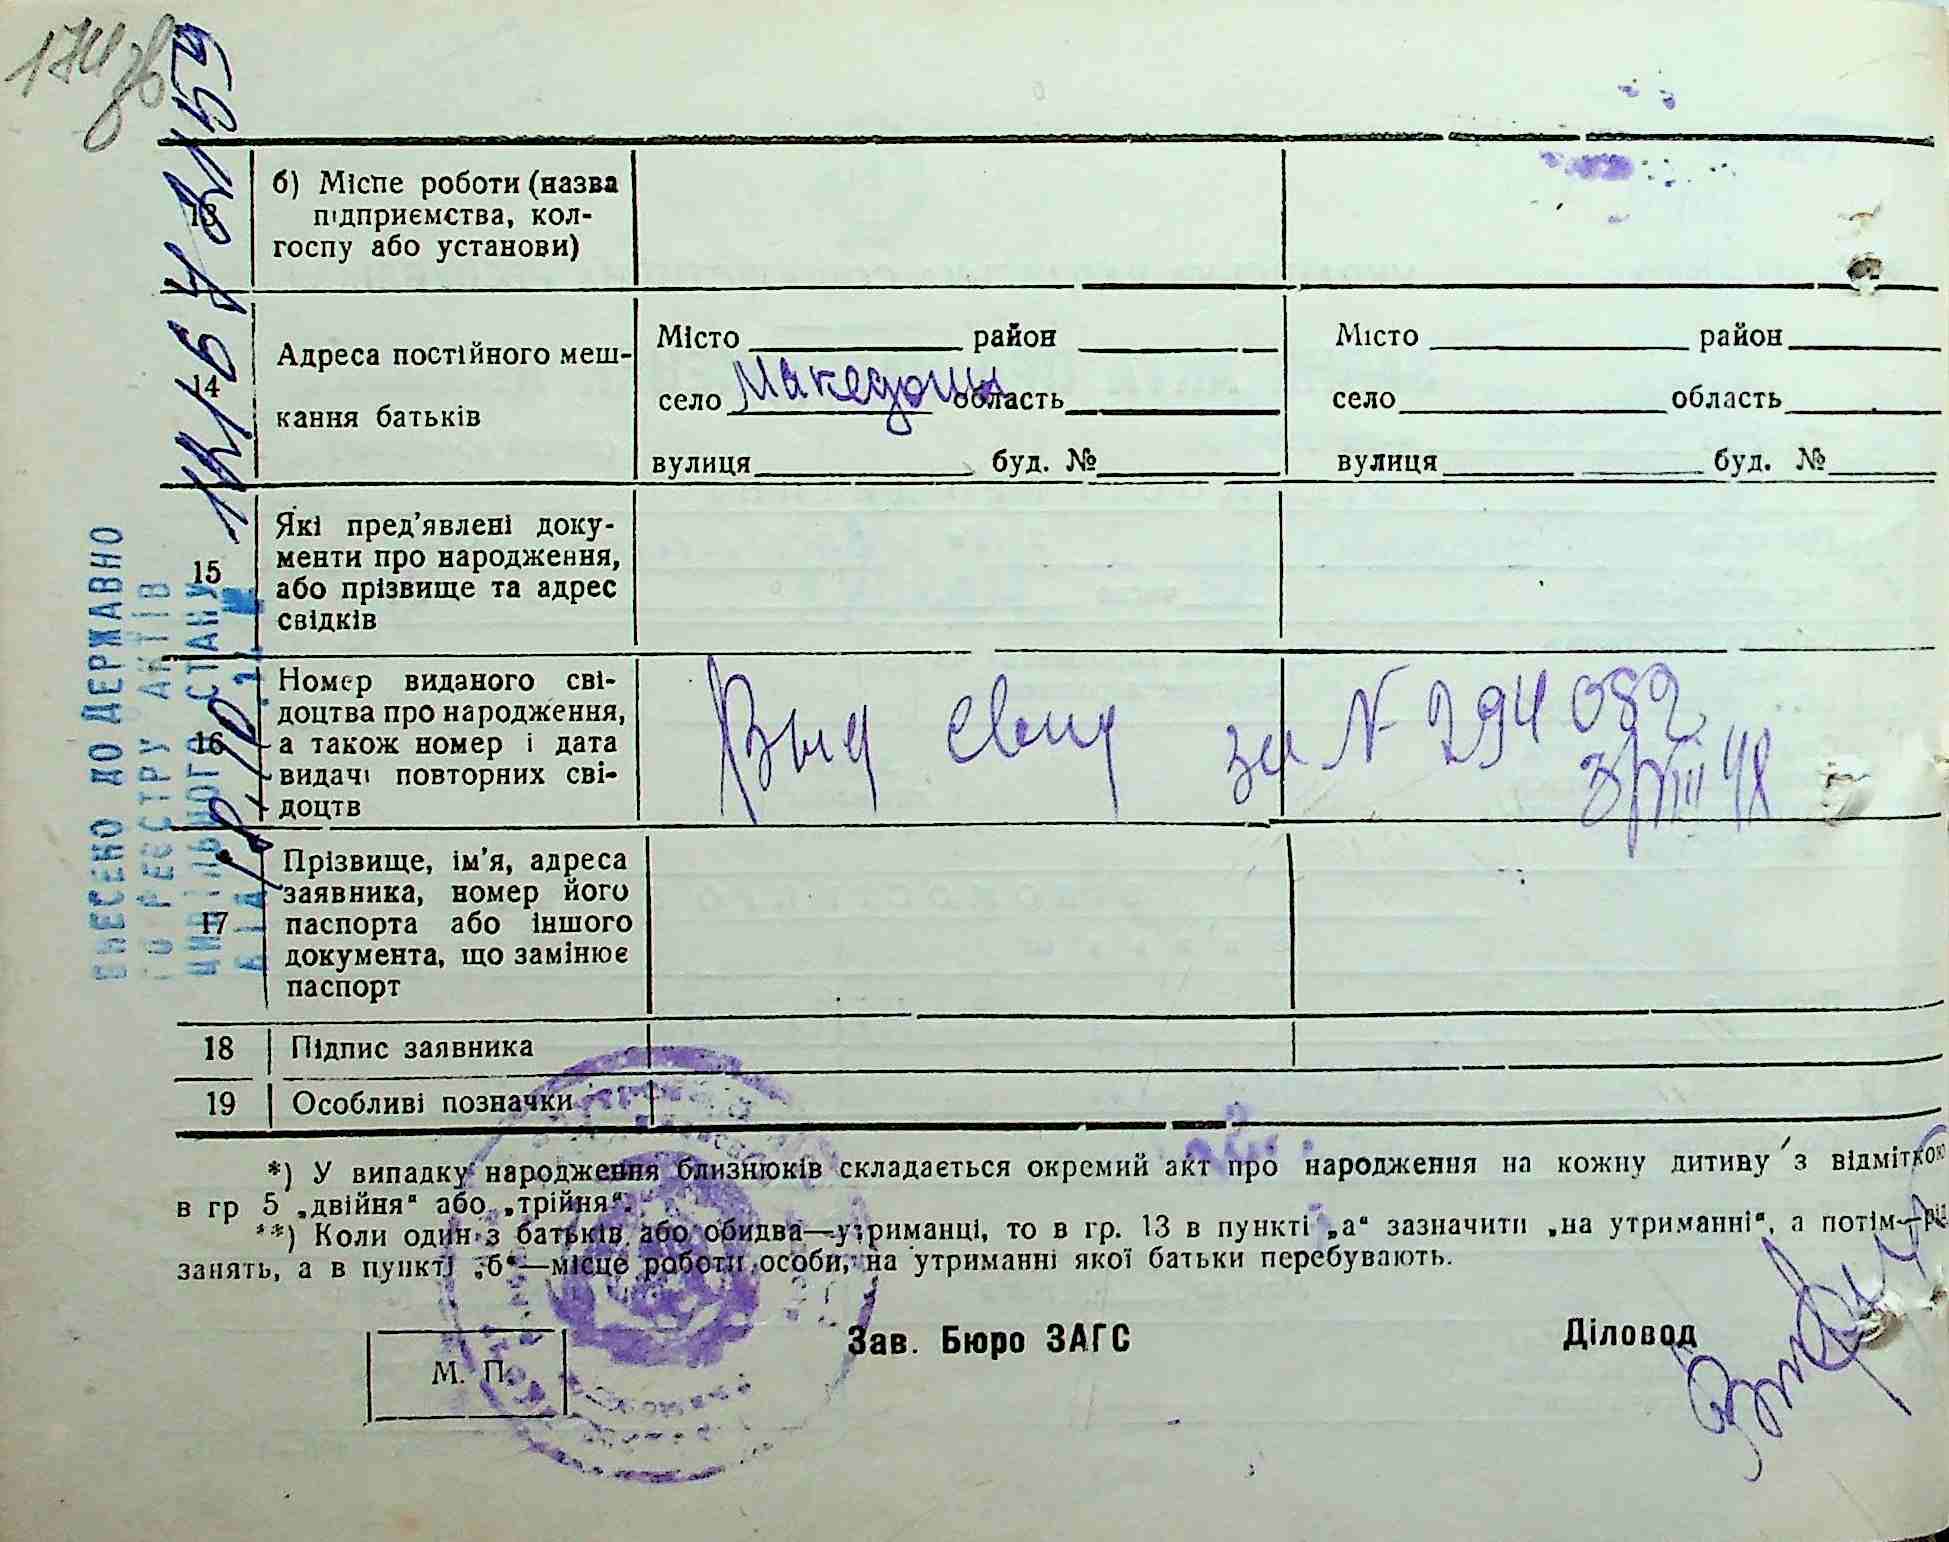 174 зв
13
б) Місце роботи (назва
підприємства, кол-
госпу або установи)
14
Адреса постійного меш-
кання батьків
Місто район
село Македони область
вулиця буд. №
Місто район
село область
вулиця буд. №
15
Які пред'явлені доку-
менти про народження,
або прізвище та адрес
свідків
16
Номер виданого сві-
доцтва про народження,
а також номер і дата
видачі повторних сві-
доцтв
Выд свид за № 294082
3/VIII 48
17
Прізвище, ім'я, адреса
заявника, номер його
паспорта або іншого
документа, що замінює
паспорт
18 Підпис заявника
19 Особливі позначки
*) У випадку народження близнюків складається окремий акт про народження на кожну дитину з відміткою
в гр 5 „двійня“ або „трійня“.
**) Коли один з батьків або обидва—утриманці, то в гр. 13 в пункті „а“ зазначити „на утриманні“, а потім—рід
занять, а в пункті „б“—місце роботи особи, на утриманні якої батьки перебувають.
М. П.
Зав. Бюро ЗАГС
Діловод
ВНЕСЕНО ДО ДЕРЖАВНО
ГО РЕЄСТРУ АКТІВ
ЦИВІЛЬНОГО СТАНУ